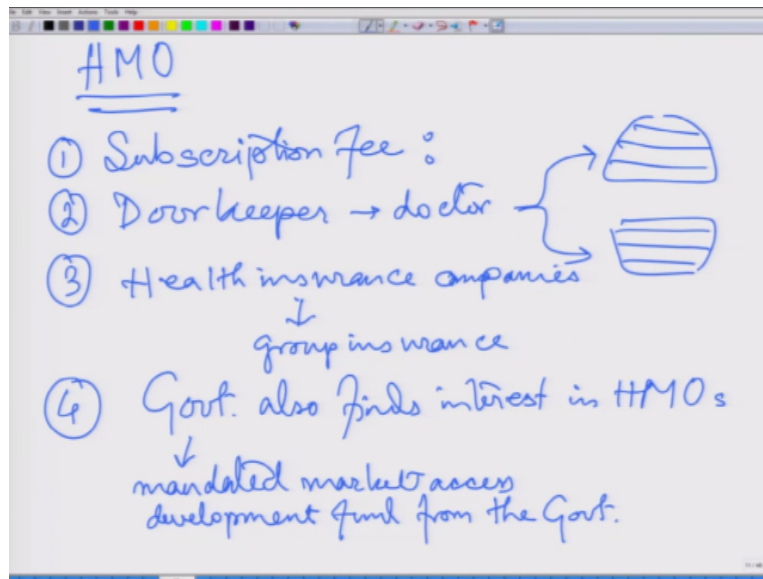 File Edit View Insert Actions Tools Help
HMO
① Subscription Fee :
② Doorkeeper → doctor
③ Health insurance companies
↓
group insurance
④ Govt. also finds interest in HMOs
↓
mandated market access
development fund from the Govt.